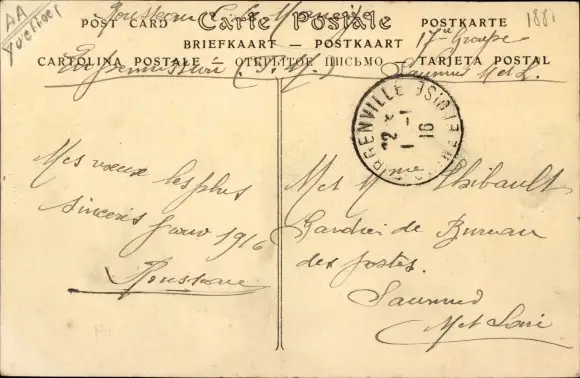 AA
Yvelines
1881
Carte Postale
POST CARD
POSTKARTE
BRIEFKAART — POSTKAART
CARTOLINA POSTALE — ОТКРЫТОЕ ПИСЬМО — TARJETA POSTAL
17e Groupe
Saumur M et L.
GUERREVILLE SEINE
2 * 1-1 16
Mes vœux les plus
sincères pour 1916
Rousseau
M et Mme Thibault
Gardien de Bureau
des postes.
Saumur
M et Loire